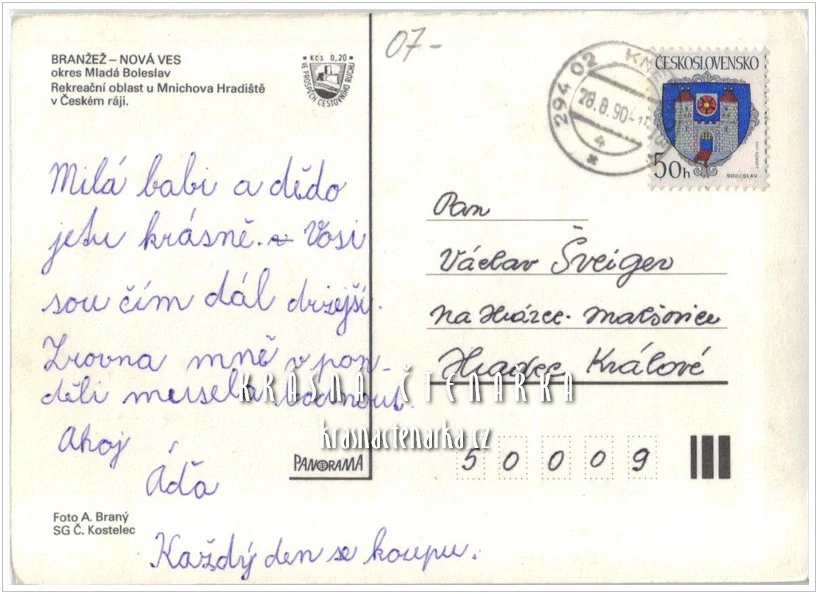 BRANŽEŽ – NOVÁ VES
okres Mladá Boleslav
Rekreační oblast u Mnichova Hradiště
v Českém ráji.
Kčs 0,20
VE PROSPĚCH CESTOVNÍHO RUCHU
07-
294 02
28.8.90
4
ČESKOSLOVENSKO
50h
SOBĚSLAV
Milá babi a dědo
jetu krásně. Vosi
sou čím dál drzejší.
Zrovna mně v pon-
děli musela bodnout.
Ahoj
Áďa
Každý den se koupu.
Pan
Václav Šveiger
na Hrázce. Malšovice
Hradec Králové
50009
KRÁSNÁ ČTENÁŘKA
krasnactenarka.cz
PANORAMA
Foto A. Braný
SG Č. Kostelec